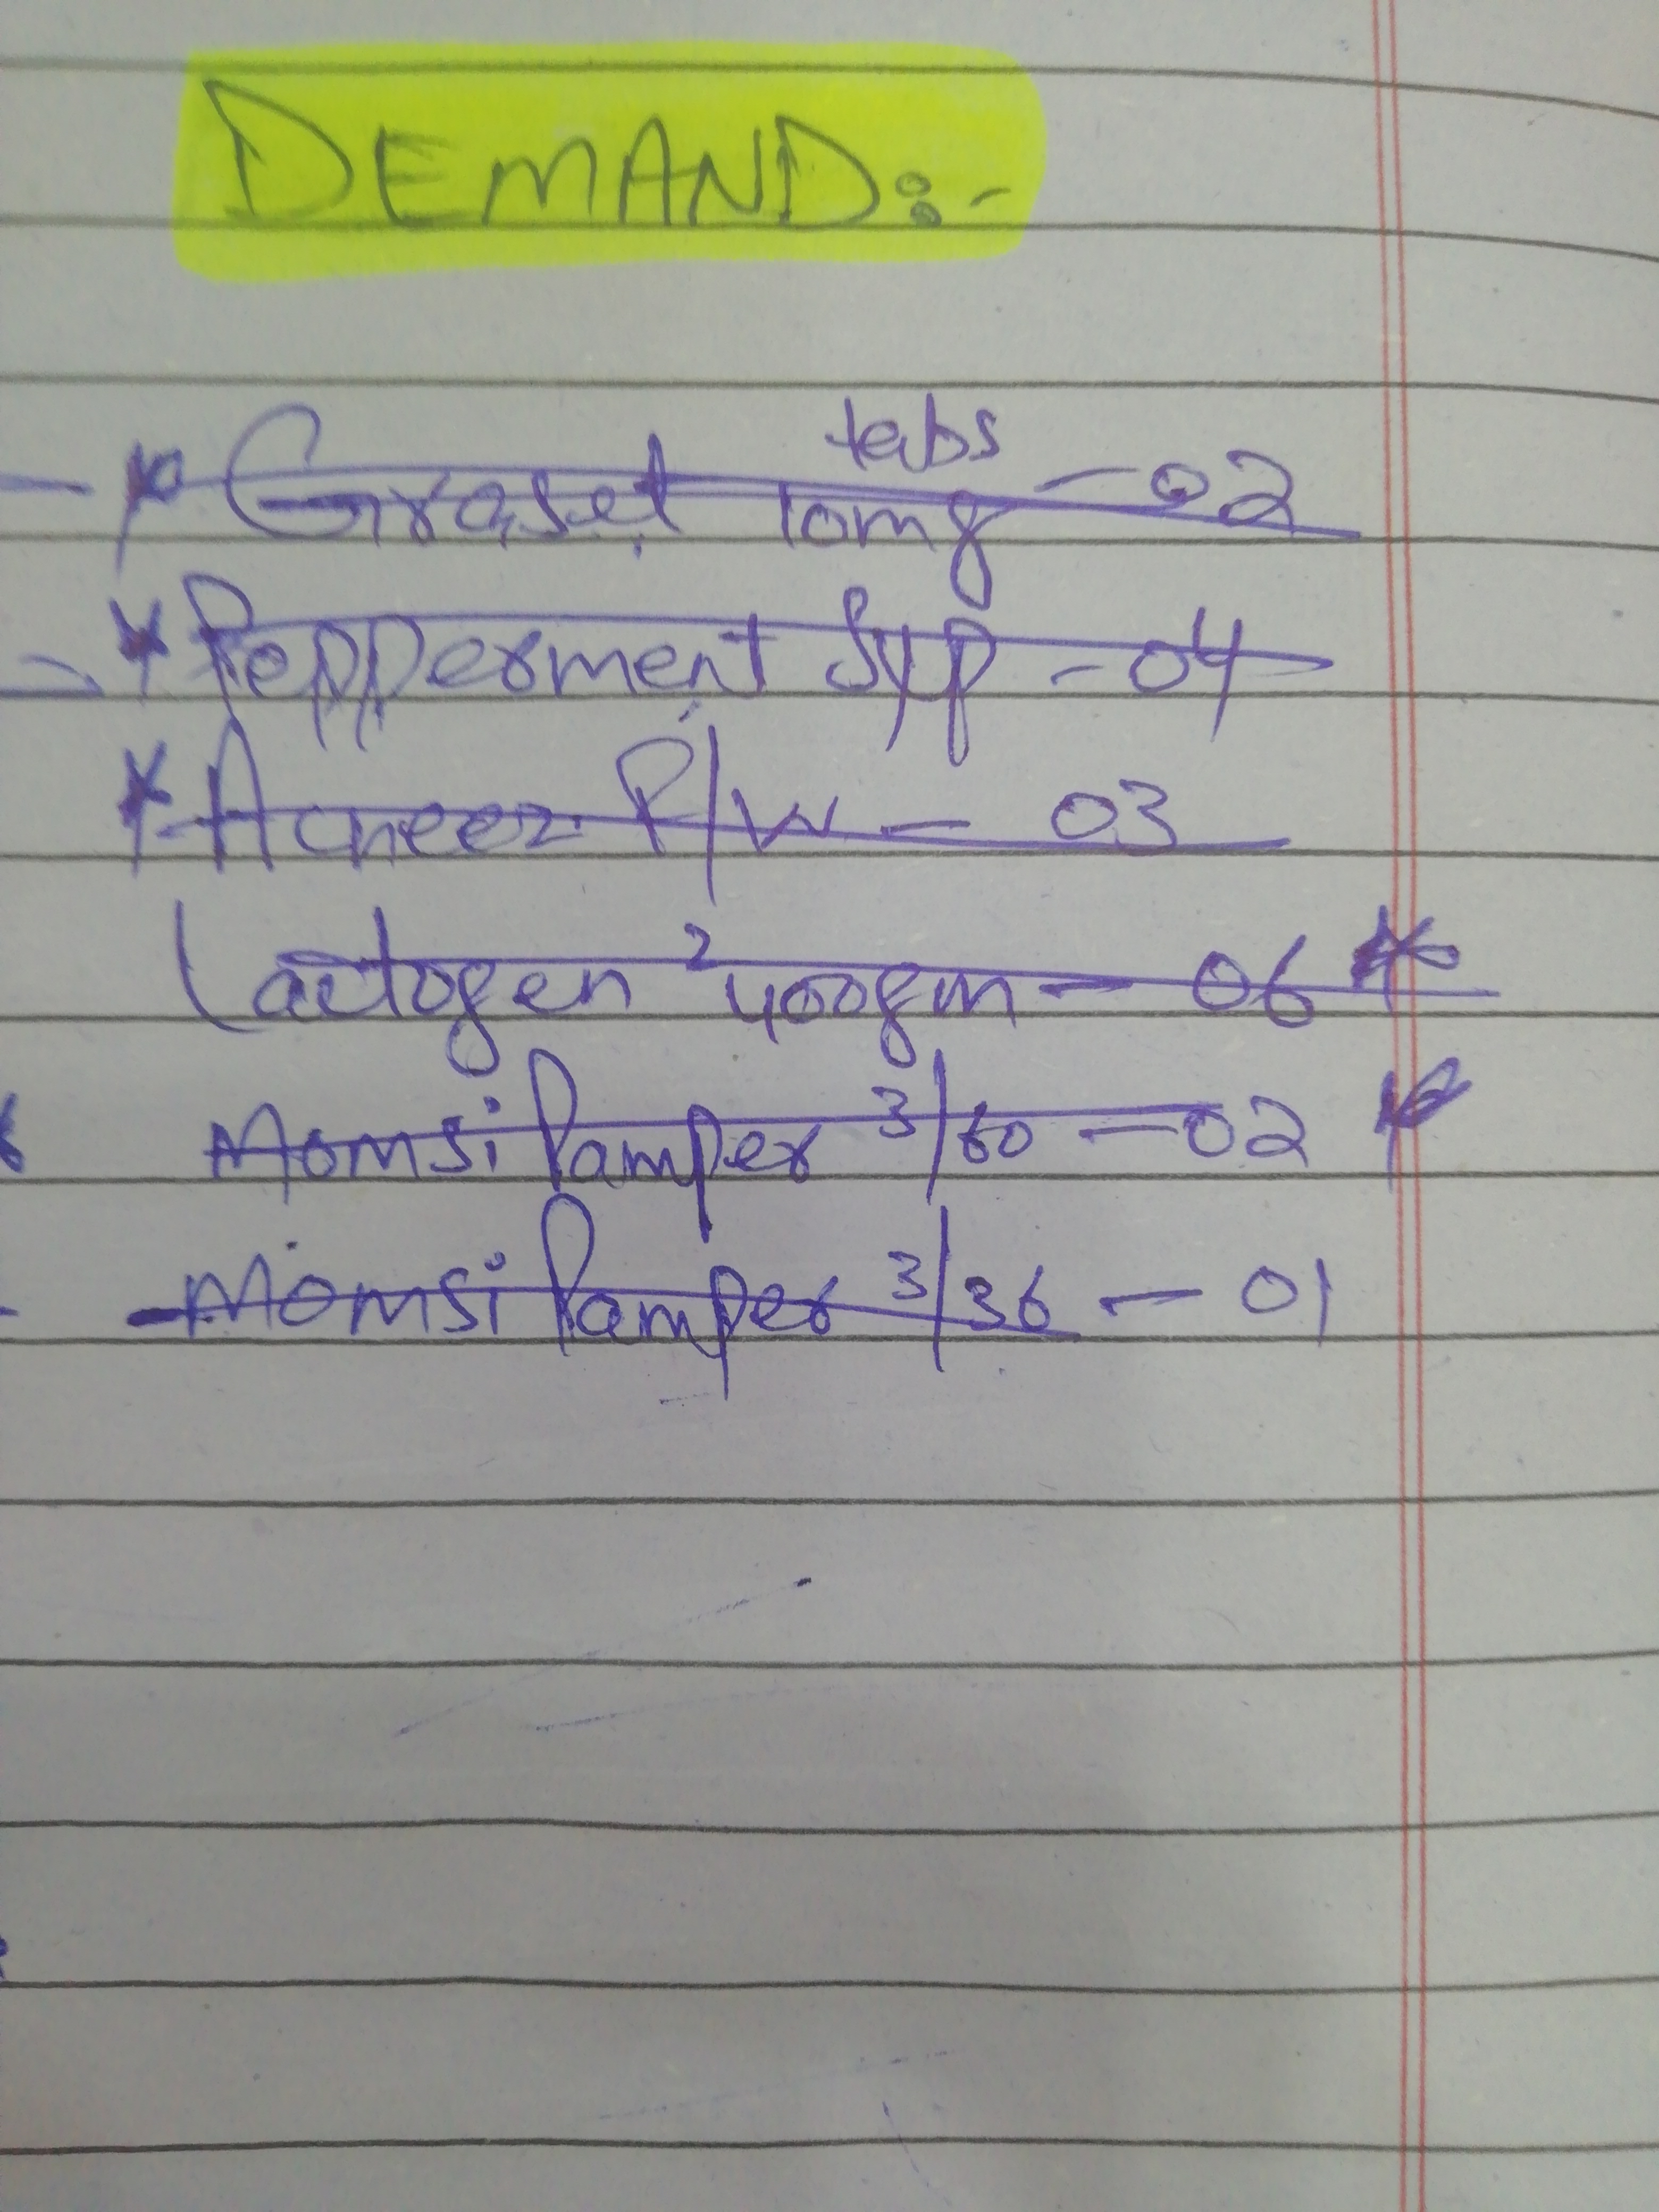 DEMAND:-
tabs
* Graset 10mg - 02
* Pepperment Syp - 04
* Acneez F/W - 03
Lactogen 2 400gm - 06 *
Momsi Pamper 3/60 - 02 *
- Momsi Pamper 3/36 - 01